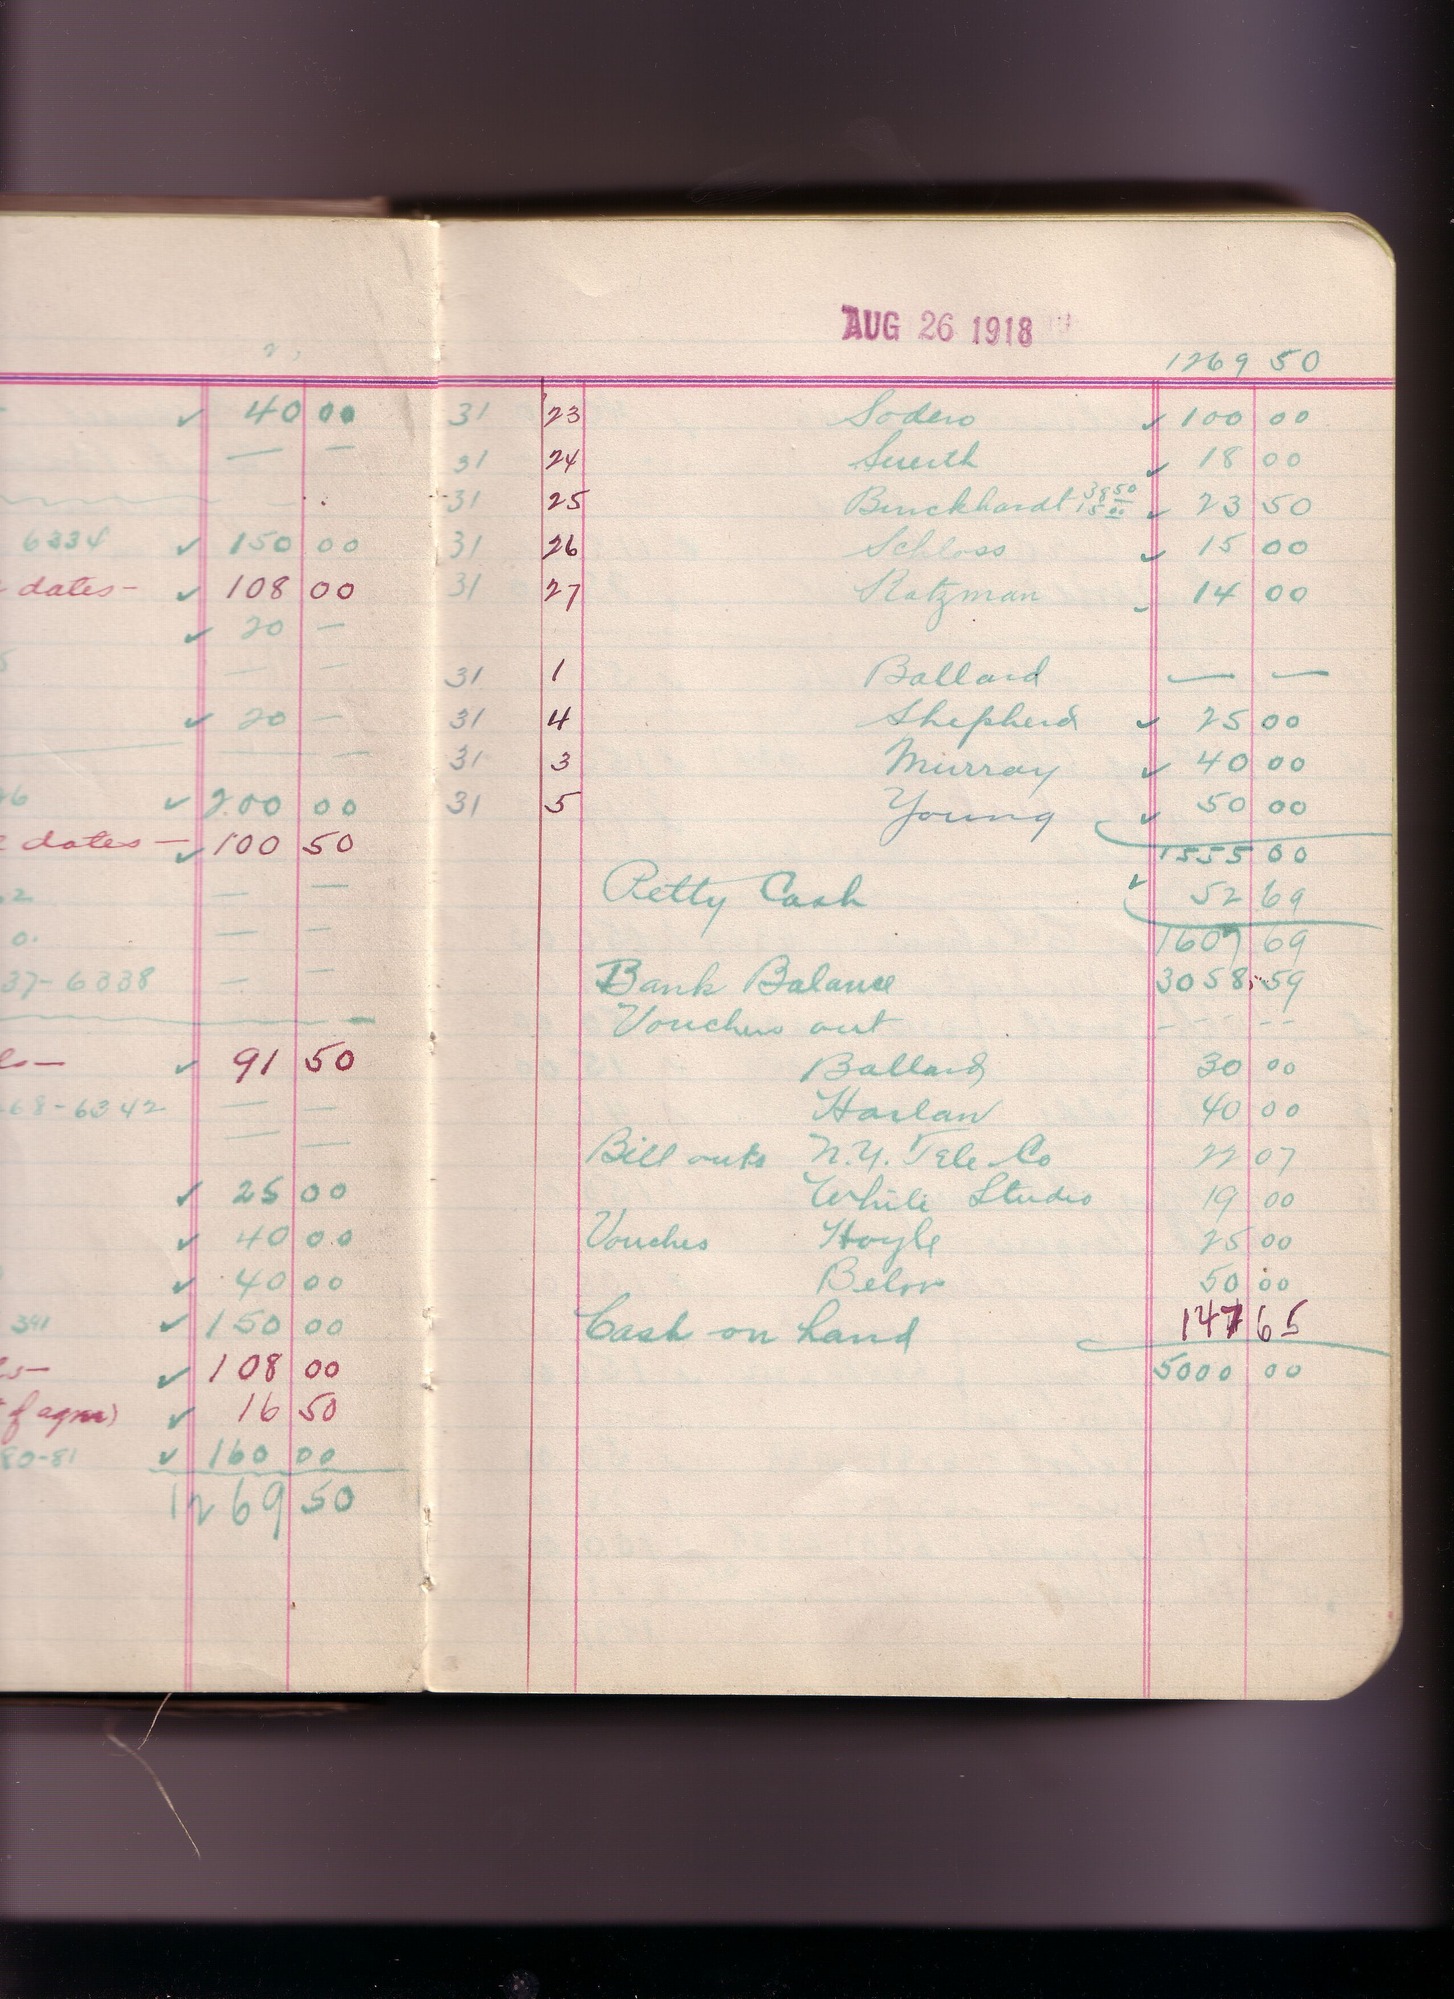 40 00
— —
6334 ✓ 150 00
dates— ✓ 108 00
✓ 20 —
— —
✓ 20 —
— —
✓ 200 00
dates— ✓ 100 50
— —
— —
37-6338 —
✓ 91 50
68-6342 — —
— —
✓ 25 00
✓ 40 00
✓ 40 00
391 ✓ 150 00
✓ 108 00
of agm) ✓ 16 50
80-81 ✓ 160 00
1269 50
AUG 26 1918
1269 50
31 23 Sodero ✓ 100 00
31 24 ✓ 18 00
31 25 Burckhardt 38 50 15 00 ✓ 23 50
31 26 Schloss ✓ 15 00
31 27 Katzman ✓ 14 00
31 1 Ballard — —
31 4 Shepherd ✓ 25 00
31 3 Murray ✓ 40 00
31 5 Young ✓ 50 00
1555 00
Petty Cash ✓ 52 69
1607 69
Bank Balance 3058 59
Vouchers out ---- --
Ballard 30 00
Harlan 40 00
Bill outs N.Y. Tele Co 22 07
White Studio 19 00
Vouches Hoyle 25 00
Below 50 00
Cash on hand 147 65
5000 00